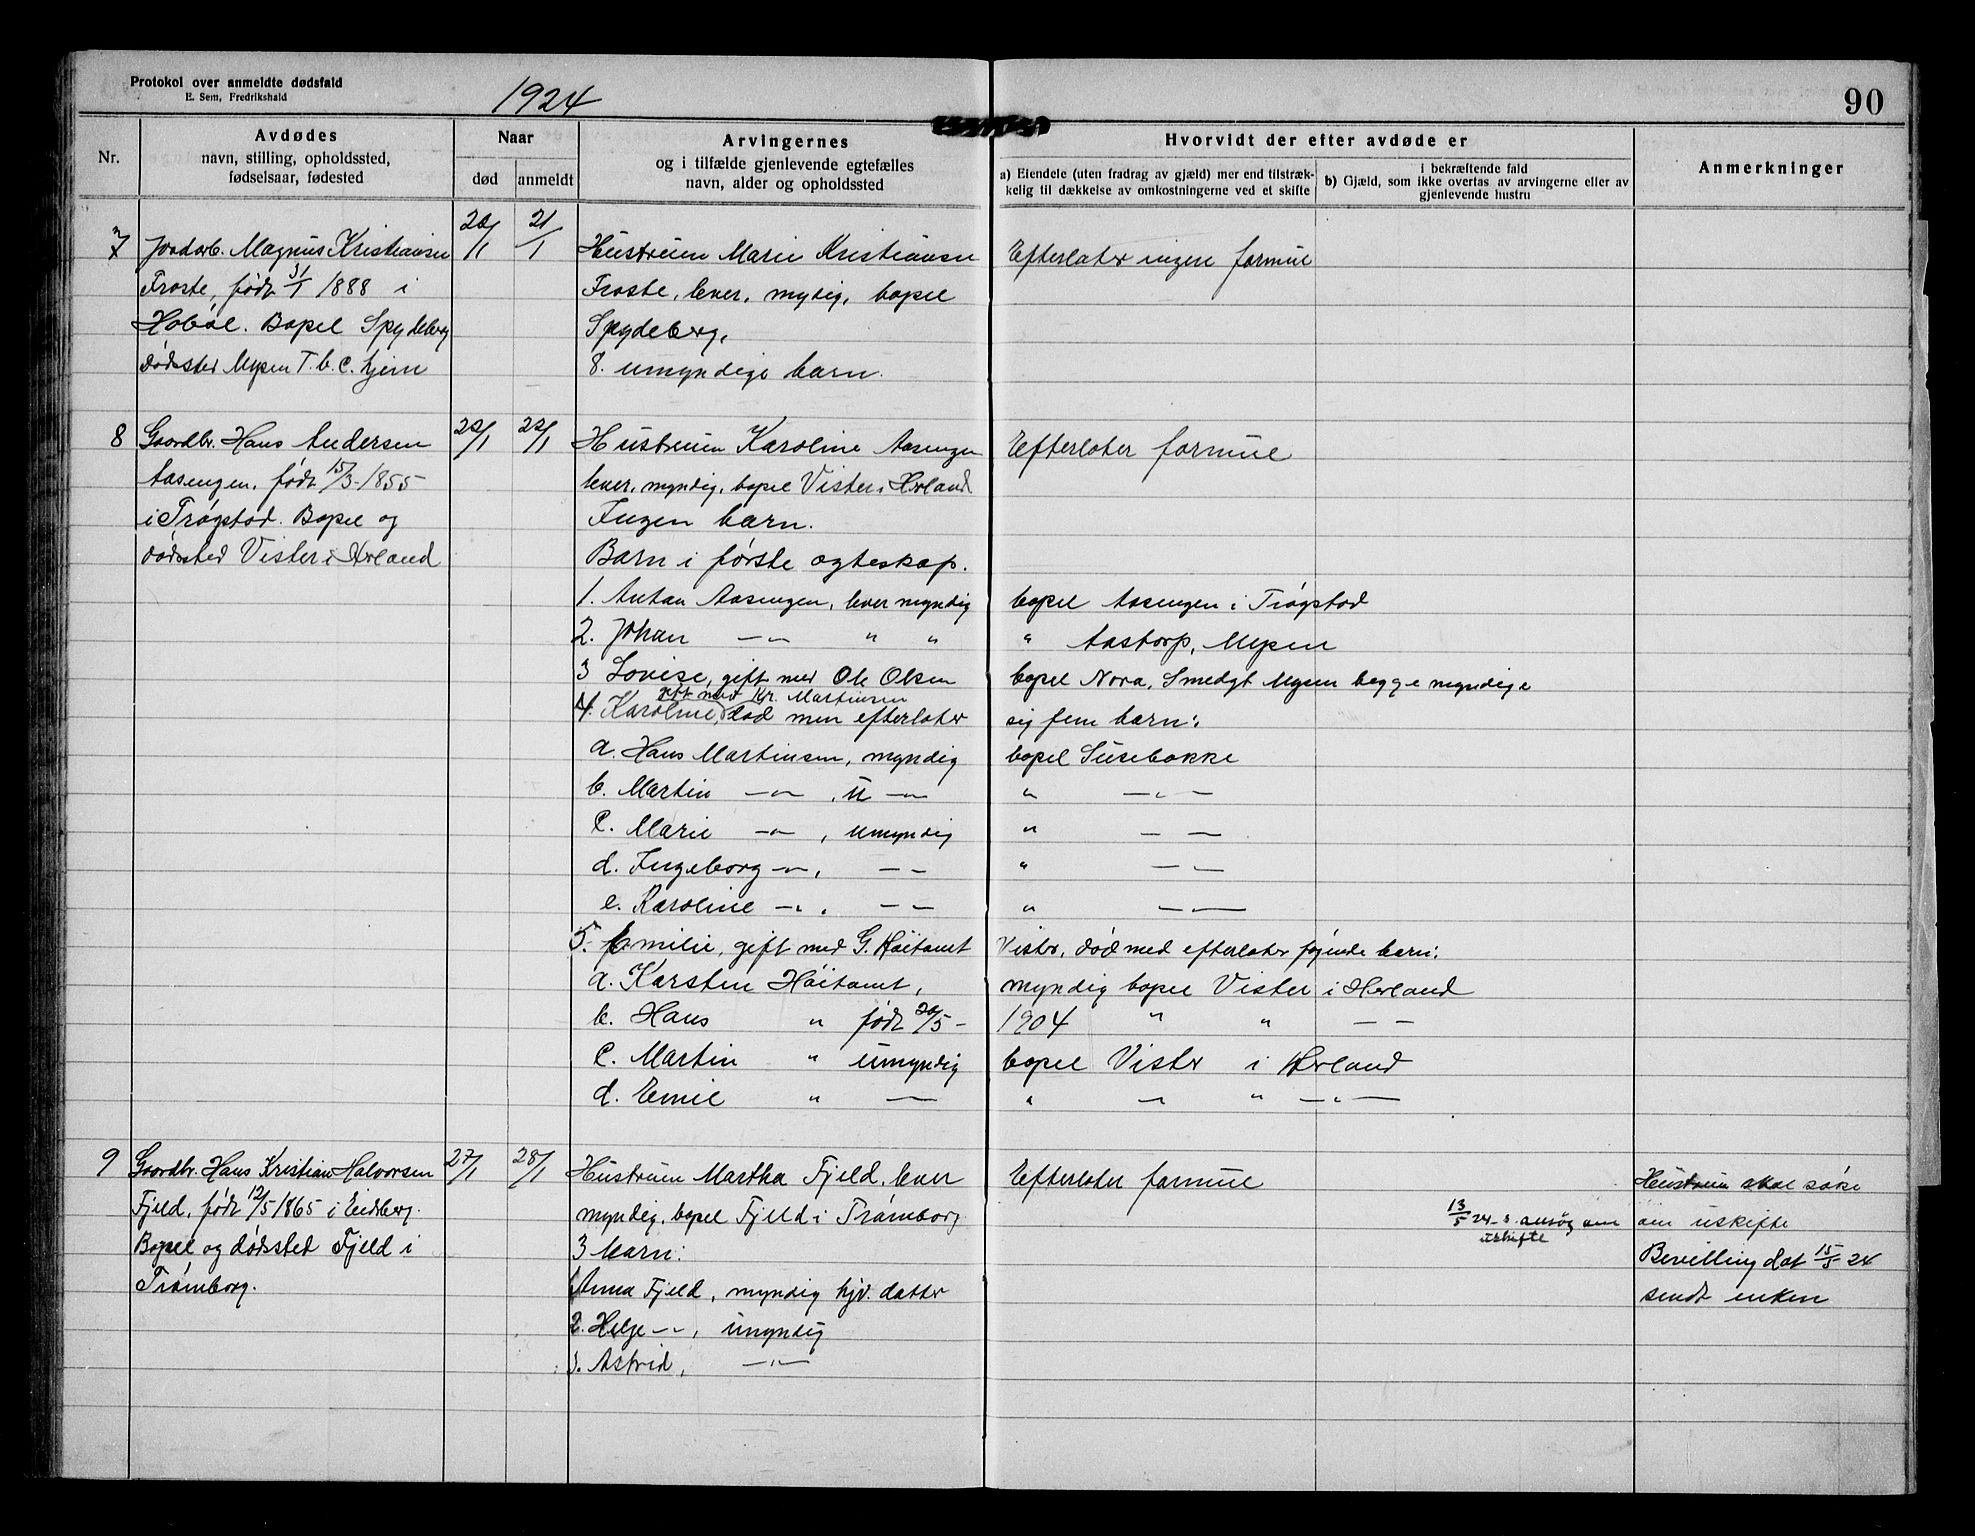 Protokol over anmeldte dødsfald
E. Sem, Fredrikshald
1924
90
Nr.
Avdødes
navn, stilling, opholdssted,
fødselsaar, fødested
Naar
død
anmeldt
Arvingernes
og i tilfælde gjenlevende egtefælles
navn, alder og opholdssted
Hvorvidt der efter avdøde er
a) Eiendele (uten fradrag av gjæld) mer end tilstræk-
kelig til dækkelse av omkostningerne ved et skifte
i bekræftende fald
b) Gjæld, som ikke overtas av arvingerne eller av
gjenlevende hustru
Anmerkninger
7
Jordarb. Magnus Kristiansen
Froste, født 31/1 1888 i
Hobøl. Bopel Spydeberg
dødssted Mysen T.b.C. hjem
20/1
21/1
Hustruen Marie Kristiansen
Froste, lever, mydig, bopel
Spydeberg,
8. umyndige barn.
Efterlater ingen formue
8
Gaardbr. Hans Andersen
Aasengen, født 15/3-1855
i Trøgstad. Bopel og
dødssted Vister i Herland
22/1
22/1
Hustruen Karoline Aasengen
lever, myndig, bopel Vister i Herland
Ingen barn.
Barn i første egteskap.
Efterlater formue
1. Anton Aasengen, lever myndig bopel Aasengen i Trøgstad
2. Johan -"- " " " Aastorp, Mysen
3 Lovise, gift med Ole Olsen bopel Nora, Smedgt Mysen begge myndige
gift med Kr. Martinsen
4. Karoline, død men efterlater sig fem barn:
a. Hans Martinsen, myndig bopel Susebakke
b. Martin -"- , u -"- " -"-
c. Marie -"- , umyndig " - -
d. Ingeborg -"- , - - " - -
e. Karoline -"- , - - " - -
5. Emilie, gift med G. Høitomt Vister, død med efterlater føgende barn:
a. Karsten Høitomt, myndig bopel Vister i Herland
b. Hans " født 20/5- 1904 " " - -
c. Martin " umyndig bopel Vister i Herland
d. Emil " - " - " -"-
9
Gaardbr. Hans Kristian Halvorsen
Fjeld, født 12/5 1865 i Eidsberg.
Bopel og dødssted Fjeld i
Trømborg.
27/1
28/1
Hustruen Martha Fjeld, lever
myndig, bopel Fjeld i Trømborg
3 barn:
1. Anna Fjeld, myndig hjv. datter
2. Helge -"-, umyndig
3. Astrid, -"-
Efterlater formue
13/5 24 - s. ansøg om
uskifte
Hustruen skal søke
om uskifte
Bevilling dat 15/5 24
sendt enken